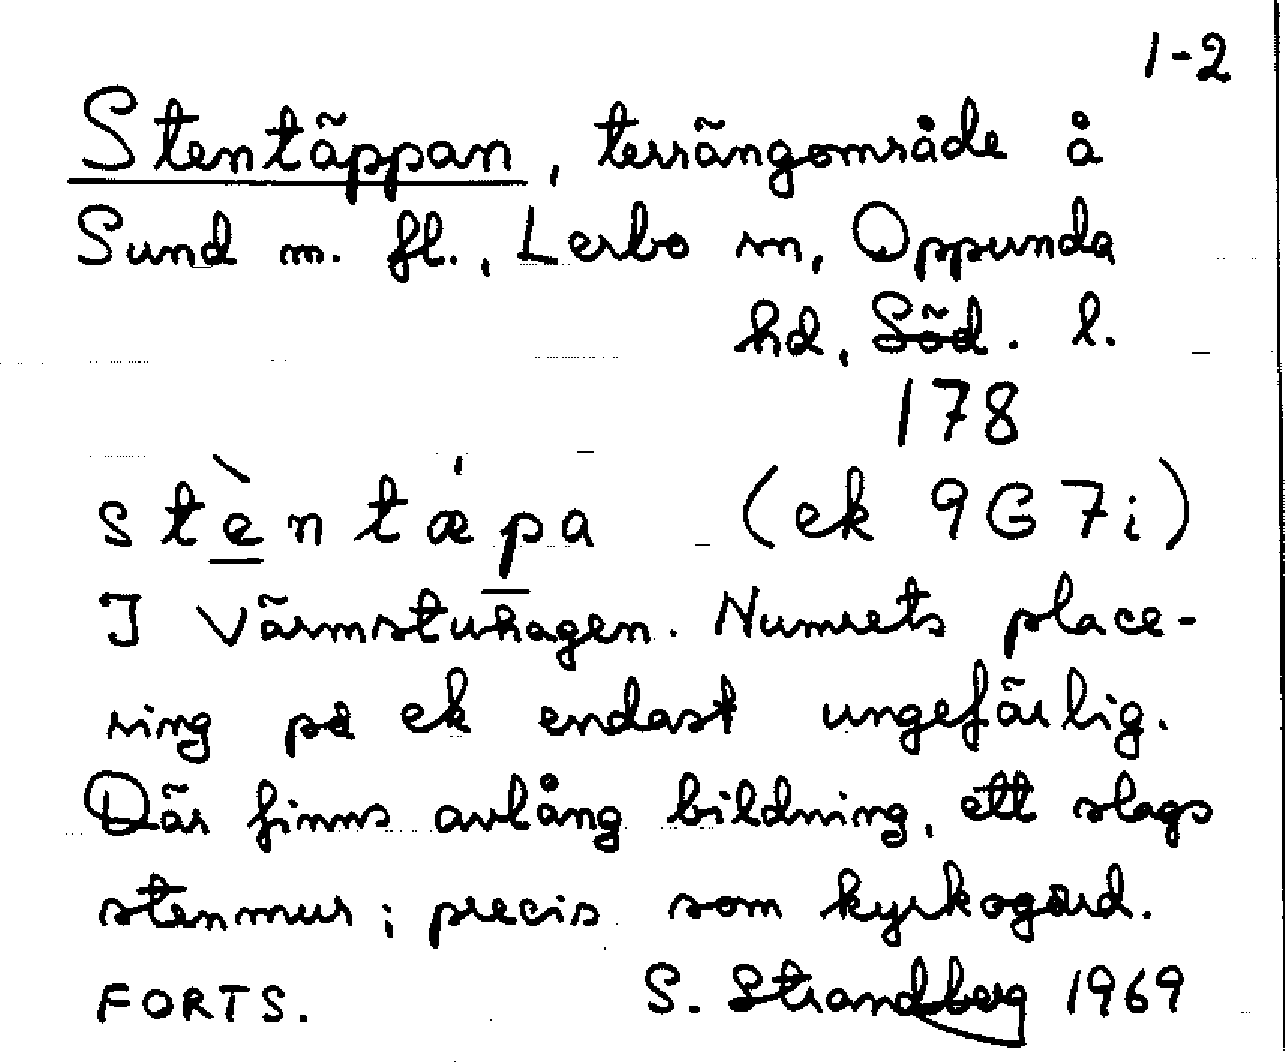 1-2
Stentäppan, terrängområde å
Sund m. fl., Lerbo sn, Oppunda
hd, Söd. l.
178
stèntæ̀pa (ek 9G7i)
I Värmstuhagen. Numrets place-
ring på ek endast ungefärlig.
Där finns avlång bildning, ett slags
stenmur; precis som kyrkogård.
FORTS. S. Strandberg 1969